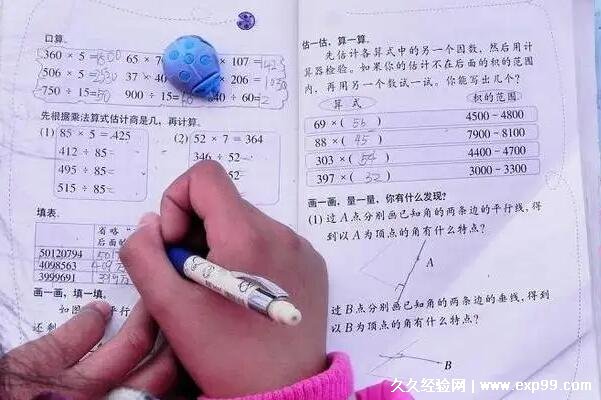 口算。
360 × 5 =1800 65 × 7 107 =
506 × 5 =2530 37 × 40 206 =1030
750 ÷ 15=50 900 ÷ 15= 840 ÷ 60=
先根据乘法算式估计商是几，再计算。
(1) 85 × 5 = 425 (2) 52 × 7 = 364
412 ÷ 85= 346 ÷ 52
495 ÷ 85=
515 ÷ 85=
填表。
省略“
后面的
50120794
4098563
3999691
画一画，填一填。
如图 平行
还剩
估一估，算一算。
先估计各算式中的另一个因数，然后用计
算器检验。如果你的估计不在后面的积的范围
内，再用另一个数试一试。你能写出几个？
算 式 积的范围
69 ×( ) 4500 - 4800
88 ×( 45 ) 7900 - 8100
303 ×( 54 ) 4400 - 4700
397 ×( 32 ) 3000 - 3300
画一画，量一量，你有什么发现？
(1) 过 A 点分别画已知角的两条边的平行线，得
到以 A 为顶点的角有什么特点？
A
过 B 点分别画已知角的两条边的垂线，得到
以 B 为顶点的角有什么特点？
B
久久经验网 www.exp99.com